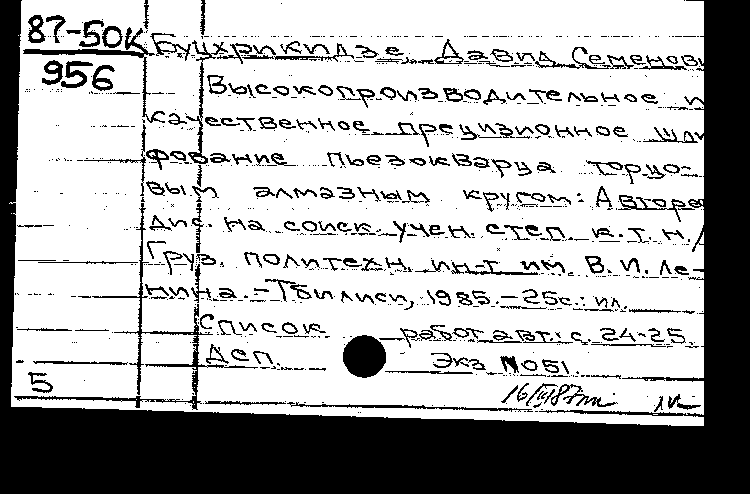 87-50К Буцхрикидзе, Давид Семенови
956
Высокопроизводительное и
качественное прецизионное шли
фование пьезокварца торцо-
вым алмазным кругом: Авторе
дис. на соиск. учен. степ. к.т.н./
Груз. политехн. ин-т им. В.И. Ле-
нина. - Тбилиси, 1985. - 25с.: ил.
Список работ авт.: с. 24-25.
Дсп. Экз №051.
5